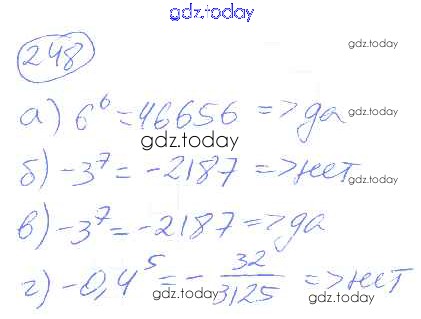 gdz.today
248
gdz.today
а) 6⁶ = 46656 => да
gdz.today
gdz.today
б) -3⁷ = -2187 => нет
gdz.today
в) -3⁷ = -2187 => да
gdz.today
г) -0,4⁵ = - 32/3125 => нет
gdz.today
gdz.today